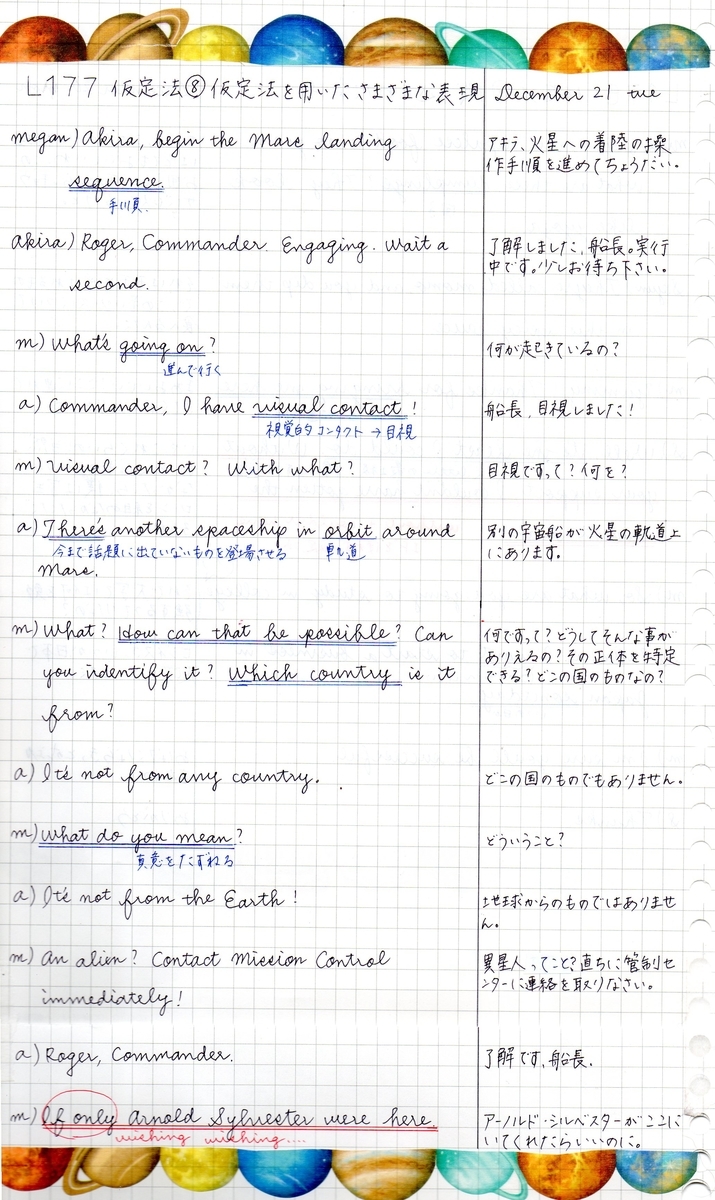 L177 仮定法⑧仮定法を用いたさまざまな表現 December 21 tue
megan) Akira, begin the Mars landing
sequence.
手順
アキラ、火星への着陸の操
作手順を進めてちょうだい。
akira) Roger, Commander. Engaging. Wait a
second.
了解しました、船長。実行
中です。少しお待ち下さい。
m) What's going on?
進んで行く
何が起きているの?
a) Commander, I have visual contact!
視覚的コンタクト → 目視
船長、目視しました!
m) Visual contact? With what?
目視ですって?何を?
a) There's another spaceship in orbit around
今まで話題に出ていないものを登場させる 軌道
Mars.
別の宇宙船が火星の軌道上
にあります。
m) What? How can that be possible? Can
you indentify it? Which country is it
from?
何ですって?どうしてそんな事が
ありえるの?その正体を特定
できる?どこの国のものなの?
a) It's not from any country.
どこの国のものでもありません。
m) What do you mean?
真意をたずねる
どういうこと?
a) It's not from the Earth!
地球からのものではありませ
ん。
m) An alien? Contact Mission Control
immediately!
異星人ってこと?直ちに管制セ
ンターに連絡を取りなさい。
a) Roger, Commander.
了解です、船長。
m) If only Arnold Sylvester were here.
wishing wishing....
アーノルド・シルベスターがここに
いてくれたらいいのに。